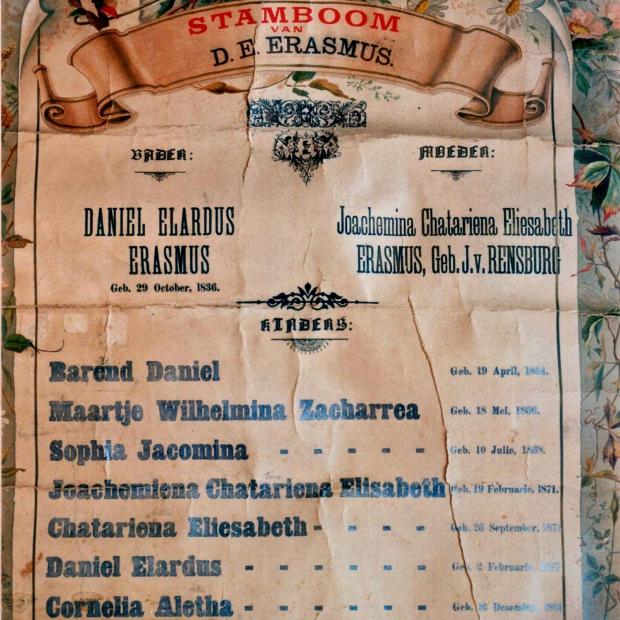 STAMBOOM
VAN
D. E. ERASMUS.
VADER:
MOEDER:
DANIEL ELARDUS
ERASMUS
Geb. 29 October, 1836.
Joachemina Chatariena Eliesabeth
ERASMUS, Geb. J. v. RENSBURG
KINDERS:
Barend Daniel Geb. 19 April, 1864.
Maartje Wilhelmina Zacharrea Geb. 18 Mei, 1866.
Sophia Jacomina - - - - - Geb. 10 Julie, 1868.
Joachemiena Chatariena Elisabeth Geb. 19 Februarie, 1871.
Chatariena Eliesabeth - - - - Geb. 26 September,
Daniel Elardus - - - - - Geb. 2 Februarie,
Cornelia Aletha - - - - - Geb.